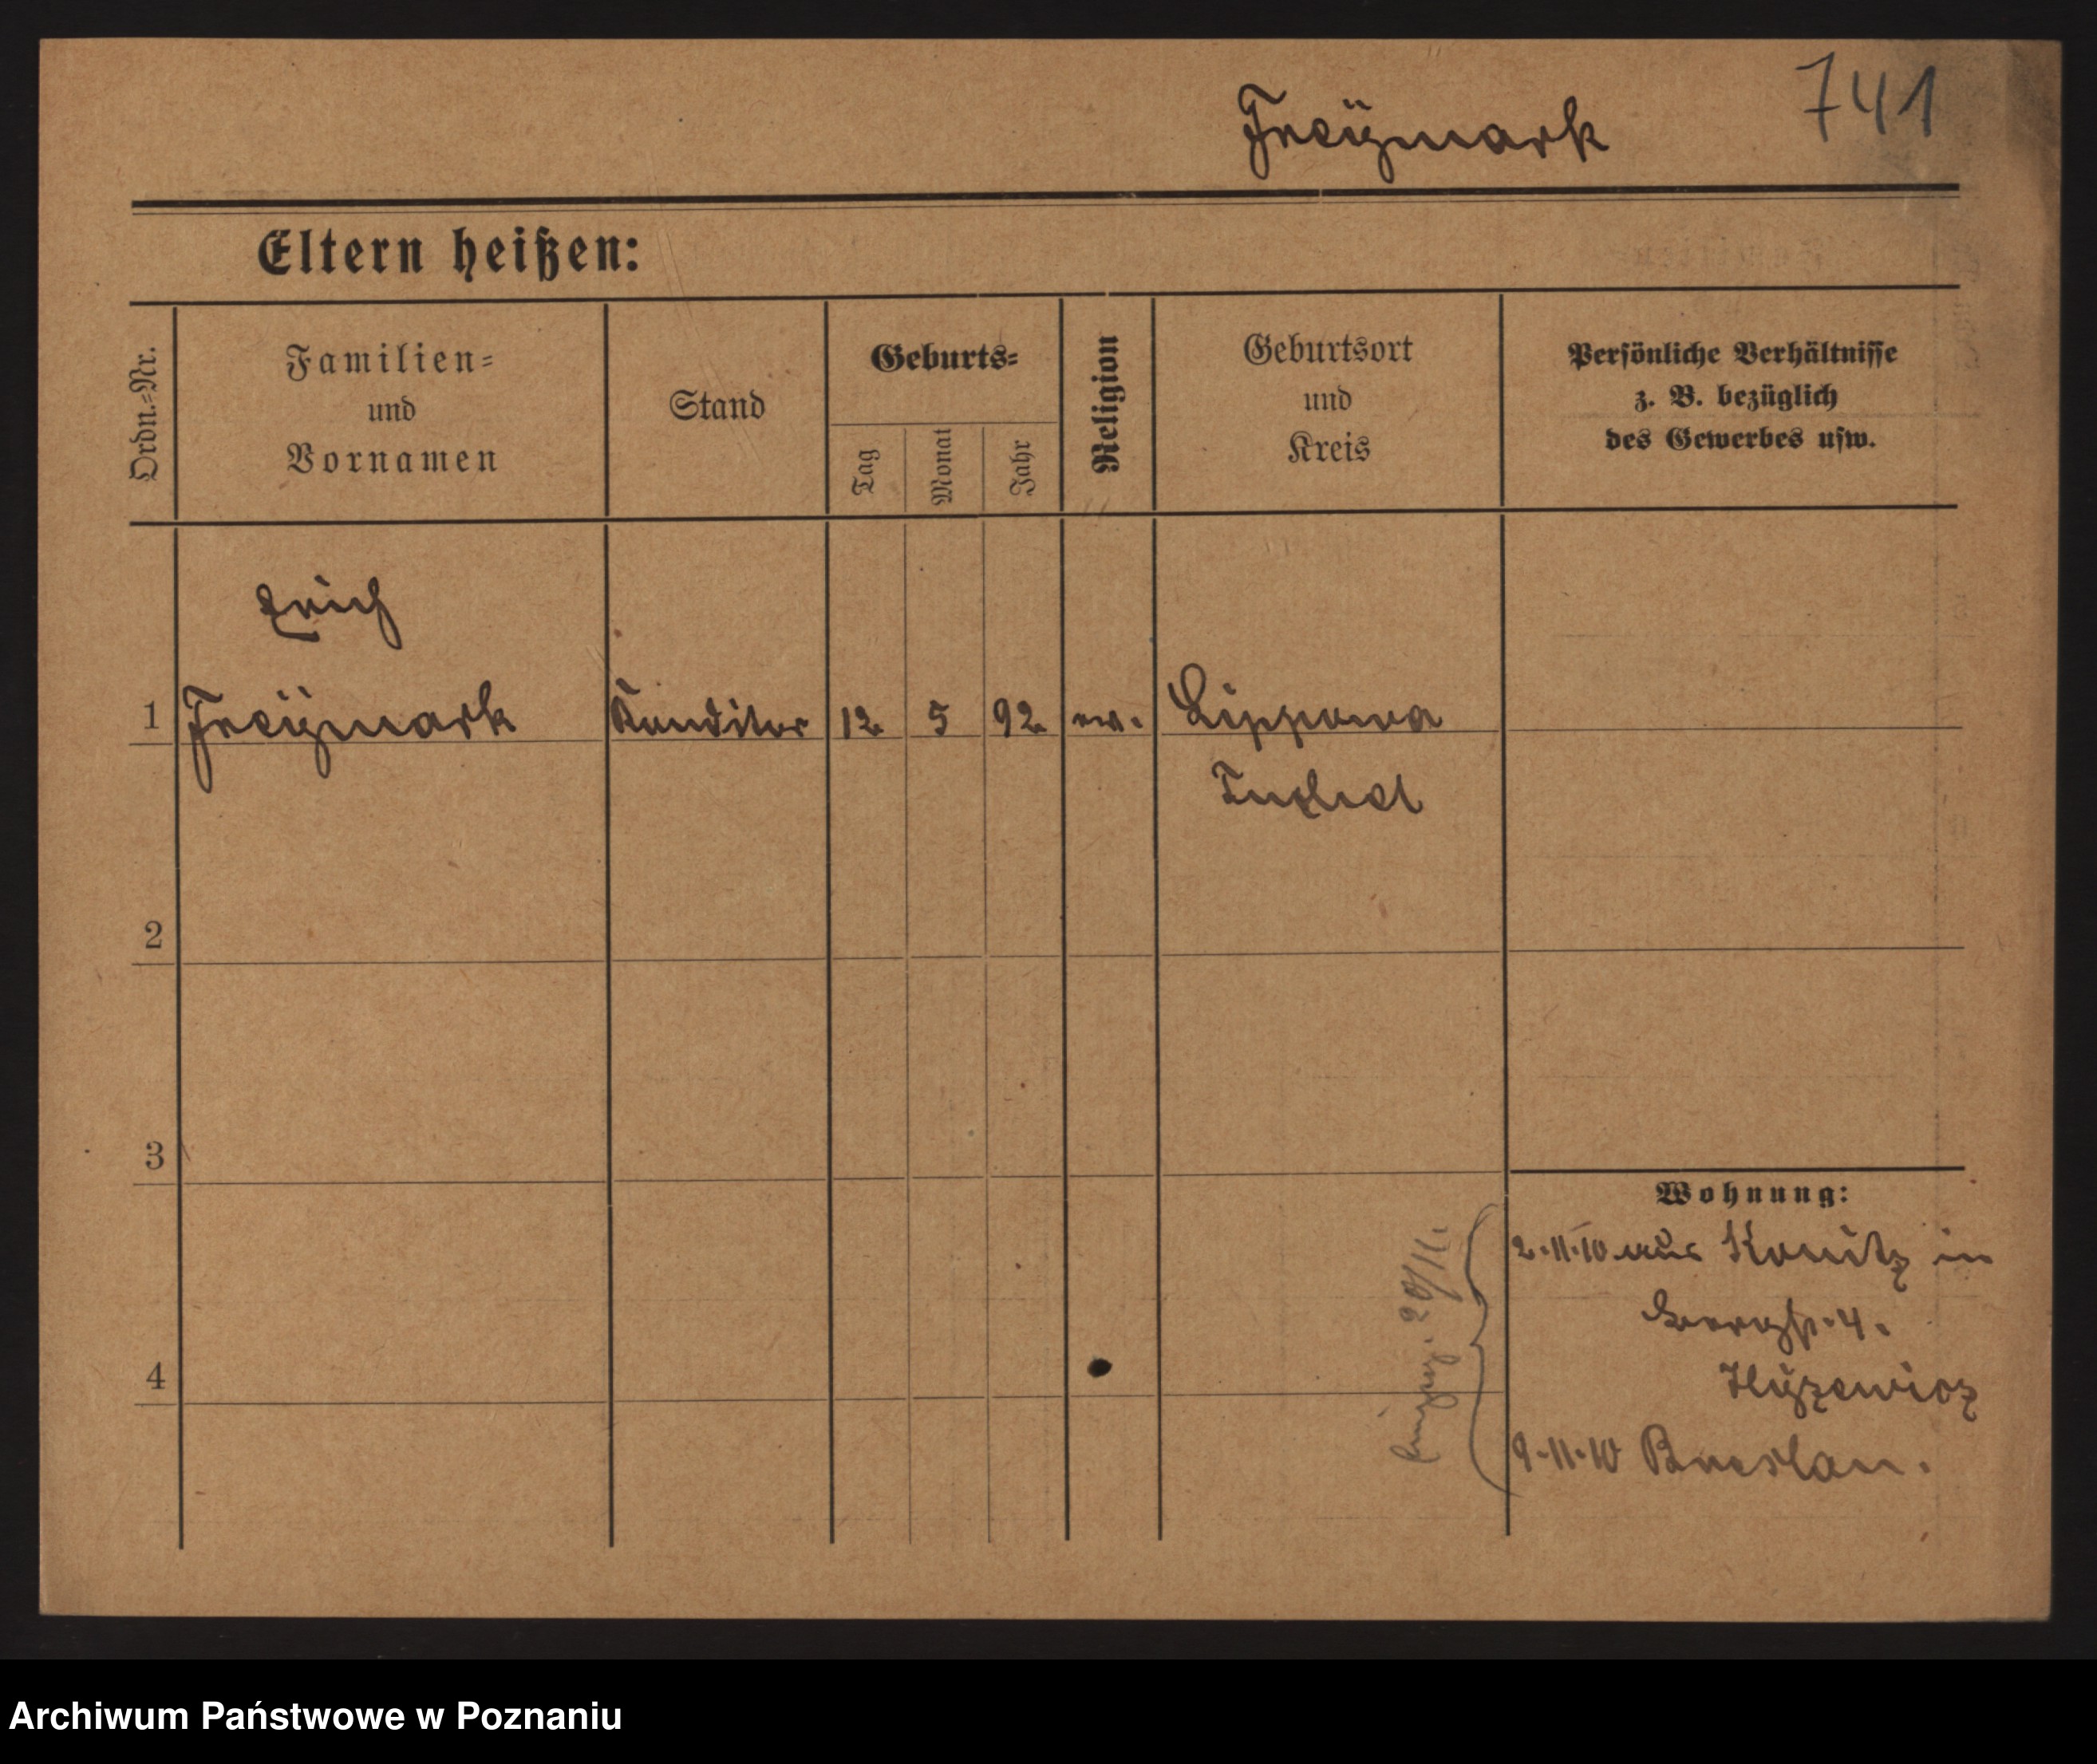 741
Freÿmark
Eltern heißen:
Ordn.=Nr.
Familien=
und
Vornamen
Stand
Geburts=
Tag
Monat
Jahr
Religion
Geburtsort
und
Kreis
Persönliche Verhältnisse
z. B. bezüglich
des Gewerbes usw.
Erich
1 Freÿmark Konditor 12. 5 92. ev. Lippowa
Tuchel
2
3
4
Wohnung:
2.11.10 aus Konitz in
4.
9.11.10 Breslau.
29/11.
Archiwum Państwowe w Poznaniu